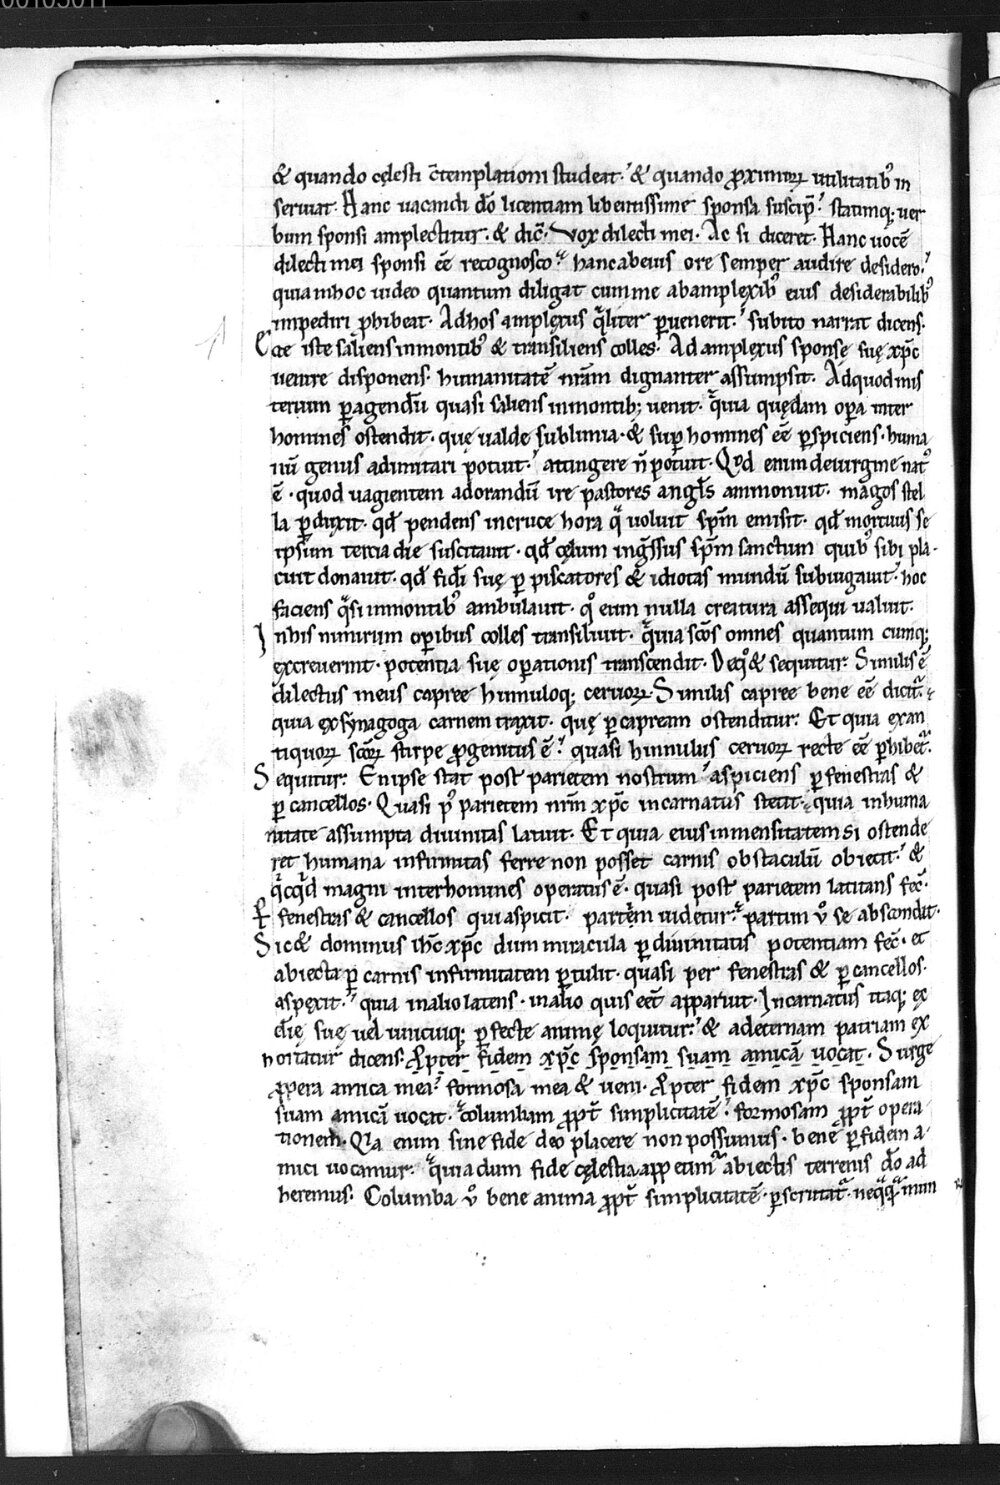 & quando cęlesti c̄templationi studeat. & quando ꝓximoꝝ utilitatibꝰ in
seruiat. Hanc uacandi dō licentiam libentissime sponsa suscip̄. statimq; uer
bum sponsi amplectitur. & dic̄. Vox dilecti mei. Ac si diceret. Hanc uocē
dilecti mei sponsi ēē recognosco. hanc ab eius ore semper audire desidero.
quia in hoc uideo quantum diligat cum me ab amplexibꝰ eius desiderabilibꝰ
impediri ꝓhibeat. Ad hos amplexus q̄liter ꝑuenerit. subito narrat dicens.
Ecce iste saliens in montibꝰ & transiliens colles. Ad amplexus sponsę suę xp̄c
uenire disponens. humanitatē nr̄am dignanter assumpsit. Ad quod mis
terium ꝑagendū quasi saliens in montib; uenit. quia quędam oꝑa inter
homines ostendit. quę ualde sublimia. & suꝑ homines ēē ꝑspiciens. huma
nū genus admirari potuit. attingere n̄ potuit. Qd enim de uirgine natꝰ
ē. quod uagientem adorandū ire pastores angl̄s ammonuit. magos stel
la ꝑduxit. qd̄ pendens in cruce hora q̄ uoluit sp̄m emisit. qd̄ mortuus se
ipsum tercia die suscitauit. qd̄ cęlum ingr̄ssus sp̄m sanctum quibꝰ sibi pla
cuit donauit. qd̄ fidei suę ꝑ piscatores & idiotas mundū subiugauit. hoc
faciens q̄si in montibꝰ ambulauit. qͦ eum nulla creatura assequi ualuit.
In his nimirum oꝑibus colles transiliuit. quia sc̄os omnes quantum cumq;
excreuerint. potentia suę oꝑationis transcendit. De qͦ & sequitur. Similis ē
dilectus meus capree hinnuloq; ceruoꝝ. Similis capree bene ēē dicit᷑.
quia ex synagoga carnem traxit. quę ꝑ capream ostenditur. Et quia ex an
tiquoꝝ sc̄oꝝ stirpe ꝓgenitus ē. quasi hinnulus ceruoꝝ recte ēē ꝑhibet᷑.
Sequitur. En ipse stat post parietem nostrum aspiciens ꝑ fenestras &
ꝑ cancellos. Quasi pꝰ parietem nr̄m xp̄c incarnatus stetit. quia in huma
nitate assumpta diuinitas latuit. Et quia eius inmensitatem si ostende
ret humana infirmitas ferre non posset carnis obstaculū obiecit. &
qͥcqͥd magni inter homines operatus ē. quasi post parietem latitans fec̄.
Per fenestras & cancellos qui aspicit. partim uidetur. partim uͦ se abscondit.
Sic & dominus ih̄c xp̄c dum miracula ꝑ diuinitatis potentiam fec̄. et
abiecta ꝑ carnis infirmitatem ꝑtulit. quasi per fenestras & ꝑ cancellos.
aspexit. quia in alio latens. in alio quis eēt apparuit. Incarnatus itaq; ex
die suę uel unicuiq; ꝑfecte animę loquitur. & ad eternam patriam ex
hortatur dicens. Ꝓpter fidem xp̄c sponsam suam amicā uocat. Surge
ꝓpera amica mea. formosa mea & ueni. Ꝓpter fidem xp̄c sponsam
suam amicā uocat. columbam ꝓpt̄ simplicitatē. formosam ꝓpt̄ opera
tionem. Qia enim sine fide deo placere non possumus. bene ꝑ fidem a
mici uocamur. quia dum fide cęlestia appetim᷑ abiectis terrenis dō ad
heremus. Columba uͦ bene anima ꝓpt̄ simplicitatē